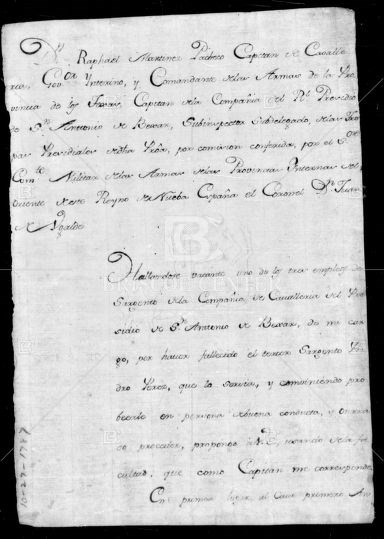 Dn. Raphael Martinez Pacheco Capitan de Cavalle
ria, Govor. Interino, y Comandante de las Armas de la Pro
vincia de los Texas, Capitan de la Compañia del Rl. Presidio
de Sn. Antonio de Bexar, Subinspector Subdelegado, de las Tro
pas Presidiales de dha Proa, por comicion conferida, por el Sor
Comte Militar de las Armas de las Provincias Internas del
Oriente de este Reyno de Nueba España el Coronel Dn. Juan
de Ugalde
Hallandose vacante uno de los tres empleos de
Sargento de la Compañia de Cavalleria del Pre
sidio de Sn. Antonio de Bexar, de mi car
go, por haver fallecido el tercer Sargento Pe
dro Perez, que lo servia, y conviniendo pro
beerle en persona de buena conducta, y onrra
do proceder, propongo à V.S. usando de la fa
cultad, que como Capitan me corresponde
En primer lugar, al Cavo primero An
10-27-1787